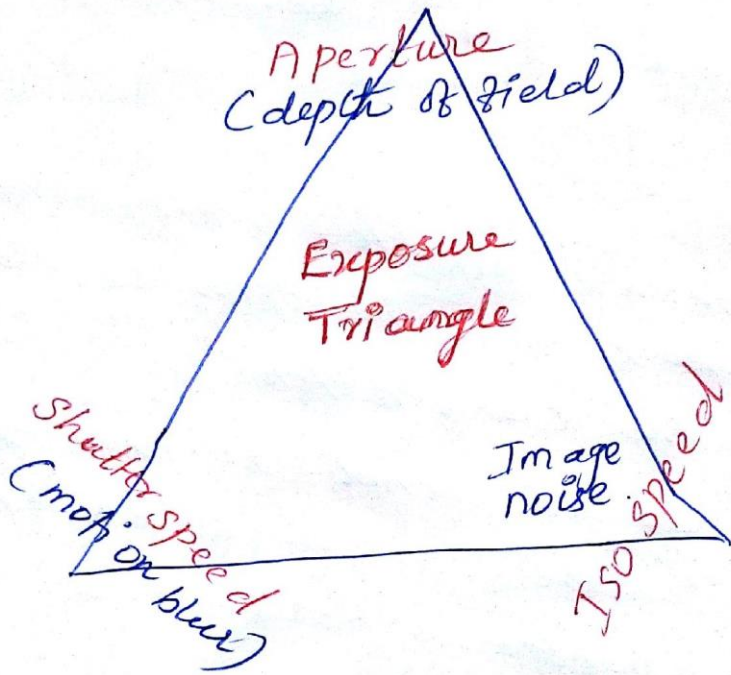 Aperture
(depth of field)
Exposure
Triangle
Shutter speed
(motion blur)
Image
noise.
Iso speed